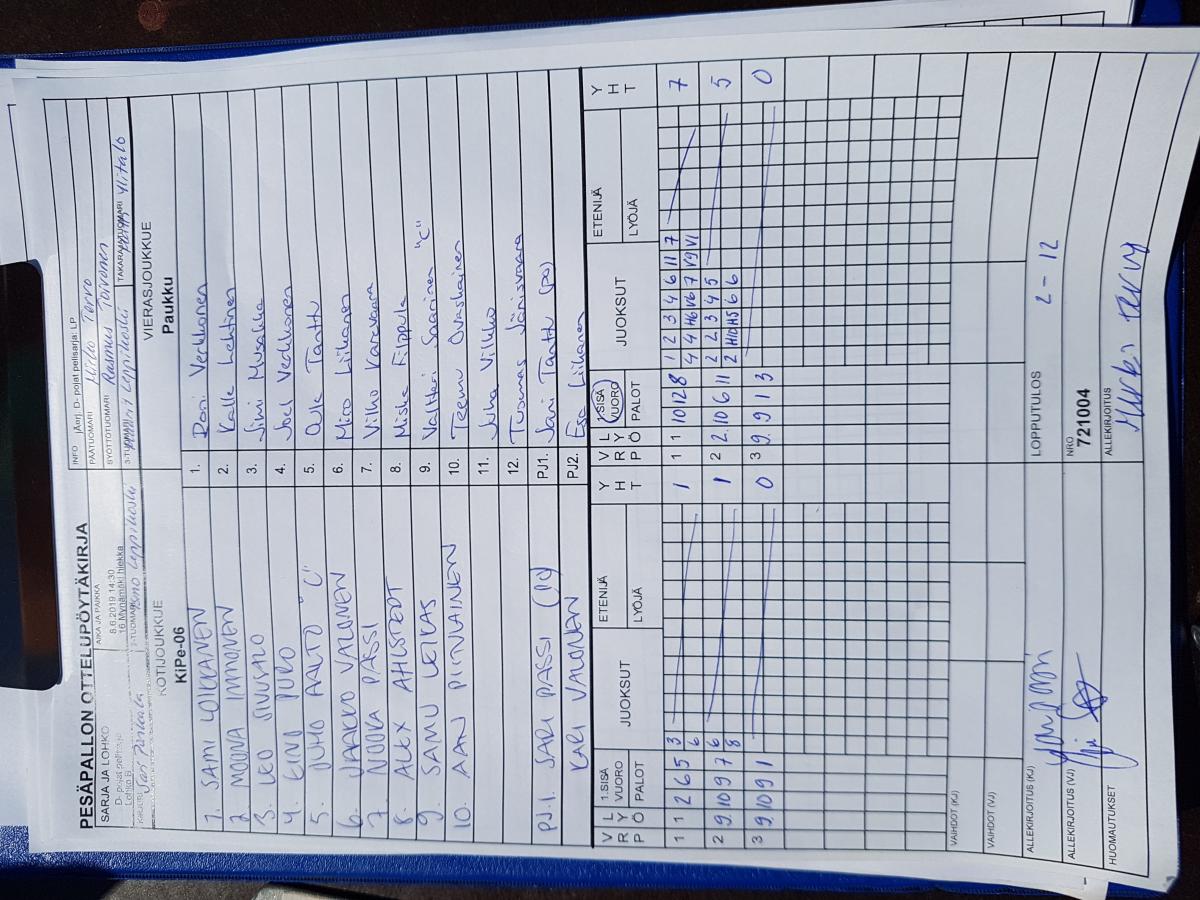 PESÄPALLON OTTELUPÖYTÄKIRJA
SARJA JA LOHKO
D- pojat pelisarja
Lohko B
AIKA JA PAIKKA
8.6.2019 14:30
16 Mynämäki hiekka
INFO jAerj. D- pojat pelisarja: LP
PÄÄTUOMARI
SYÖTTÖTUOMARI Rasmus Toivonen
2-TUOMARI Ismo Leppikoski
3-TUOMARI Leppikoski
TAKARAJATUOMARI Ylitalo
KOTIJOUKKUE
KiPe-06
VIERASJOUKKUE
Paukku
1. SAMI
2. MOONA IMMONEN
3. LEO SIVUSALO
4. EINO PURO
5. JUHO AALTO "C"
6. JAAKKO VALONEN
7. NOORA PASSI
8. ALEX AHLSTEDT
9. SAMU LEIKAS
10. AAN PIINIAINEN
PJ.1. SARI PASSI
KARI VALONEN
1. Roni Verkkonen
2. Kalle Lehtinen
3. Simi Musakka
4. Joel Verkkonen
5. Ode Tanttu
6. Miro Liikanen
7. Vilho Karevaara
8. Miska Filppula
9. Valtteri Saarinen "C"
10. Teemu Ovaskainen
11. Juha Vilkko
12. Tuomas Jänisvaara
PJ1. Jani Tanttu (po)
PJ2. Esa Liikanen
V R P
L Y Ö
1.SISÄ VUORO
PALOT
JUOKSUT
ETENIJÄ
LYÖJÄ
Y H T
1 1 2 6 5 3 1
6
2 9 10 9 7 6 1
8
3 9 10 9 1 0
V R P
L Y Ö
1.SISÄ VUORO
PALOT
JUOKSUT
ETENIJÄ
LYÖJÄ
Y H T
1 1 10 12 8 1 2 3 4 6 11 7 7
4 4 H6 V6 7 V9 V1
2 2 10 6 11 2 2 3 4 5 5
2 H10 H5 6 6
3 9 9 13 0
VAIHDOT (KJ)
VAIHDOT (VJ)
ALLEKIRJOITUS (KJ)
ALLEKIRJOITUS (VJ)
HUOMAUTUKSET
LOPPUTULOS 2 - 12
NRO
721004
ALLEKIRJOITUS